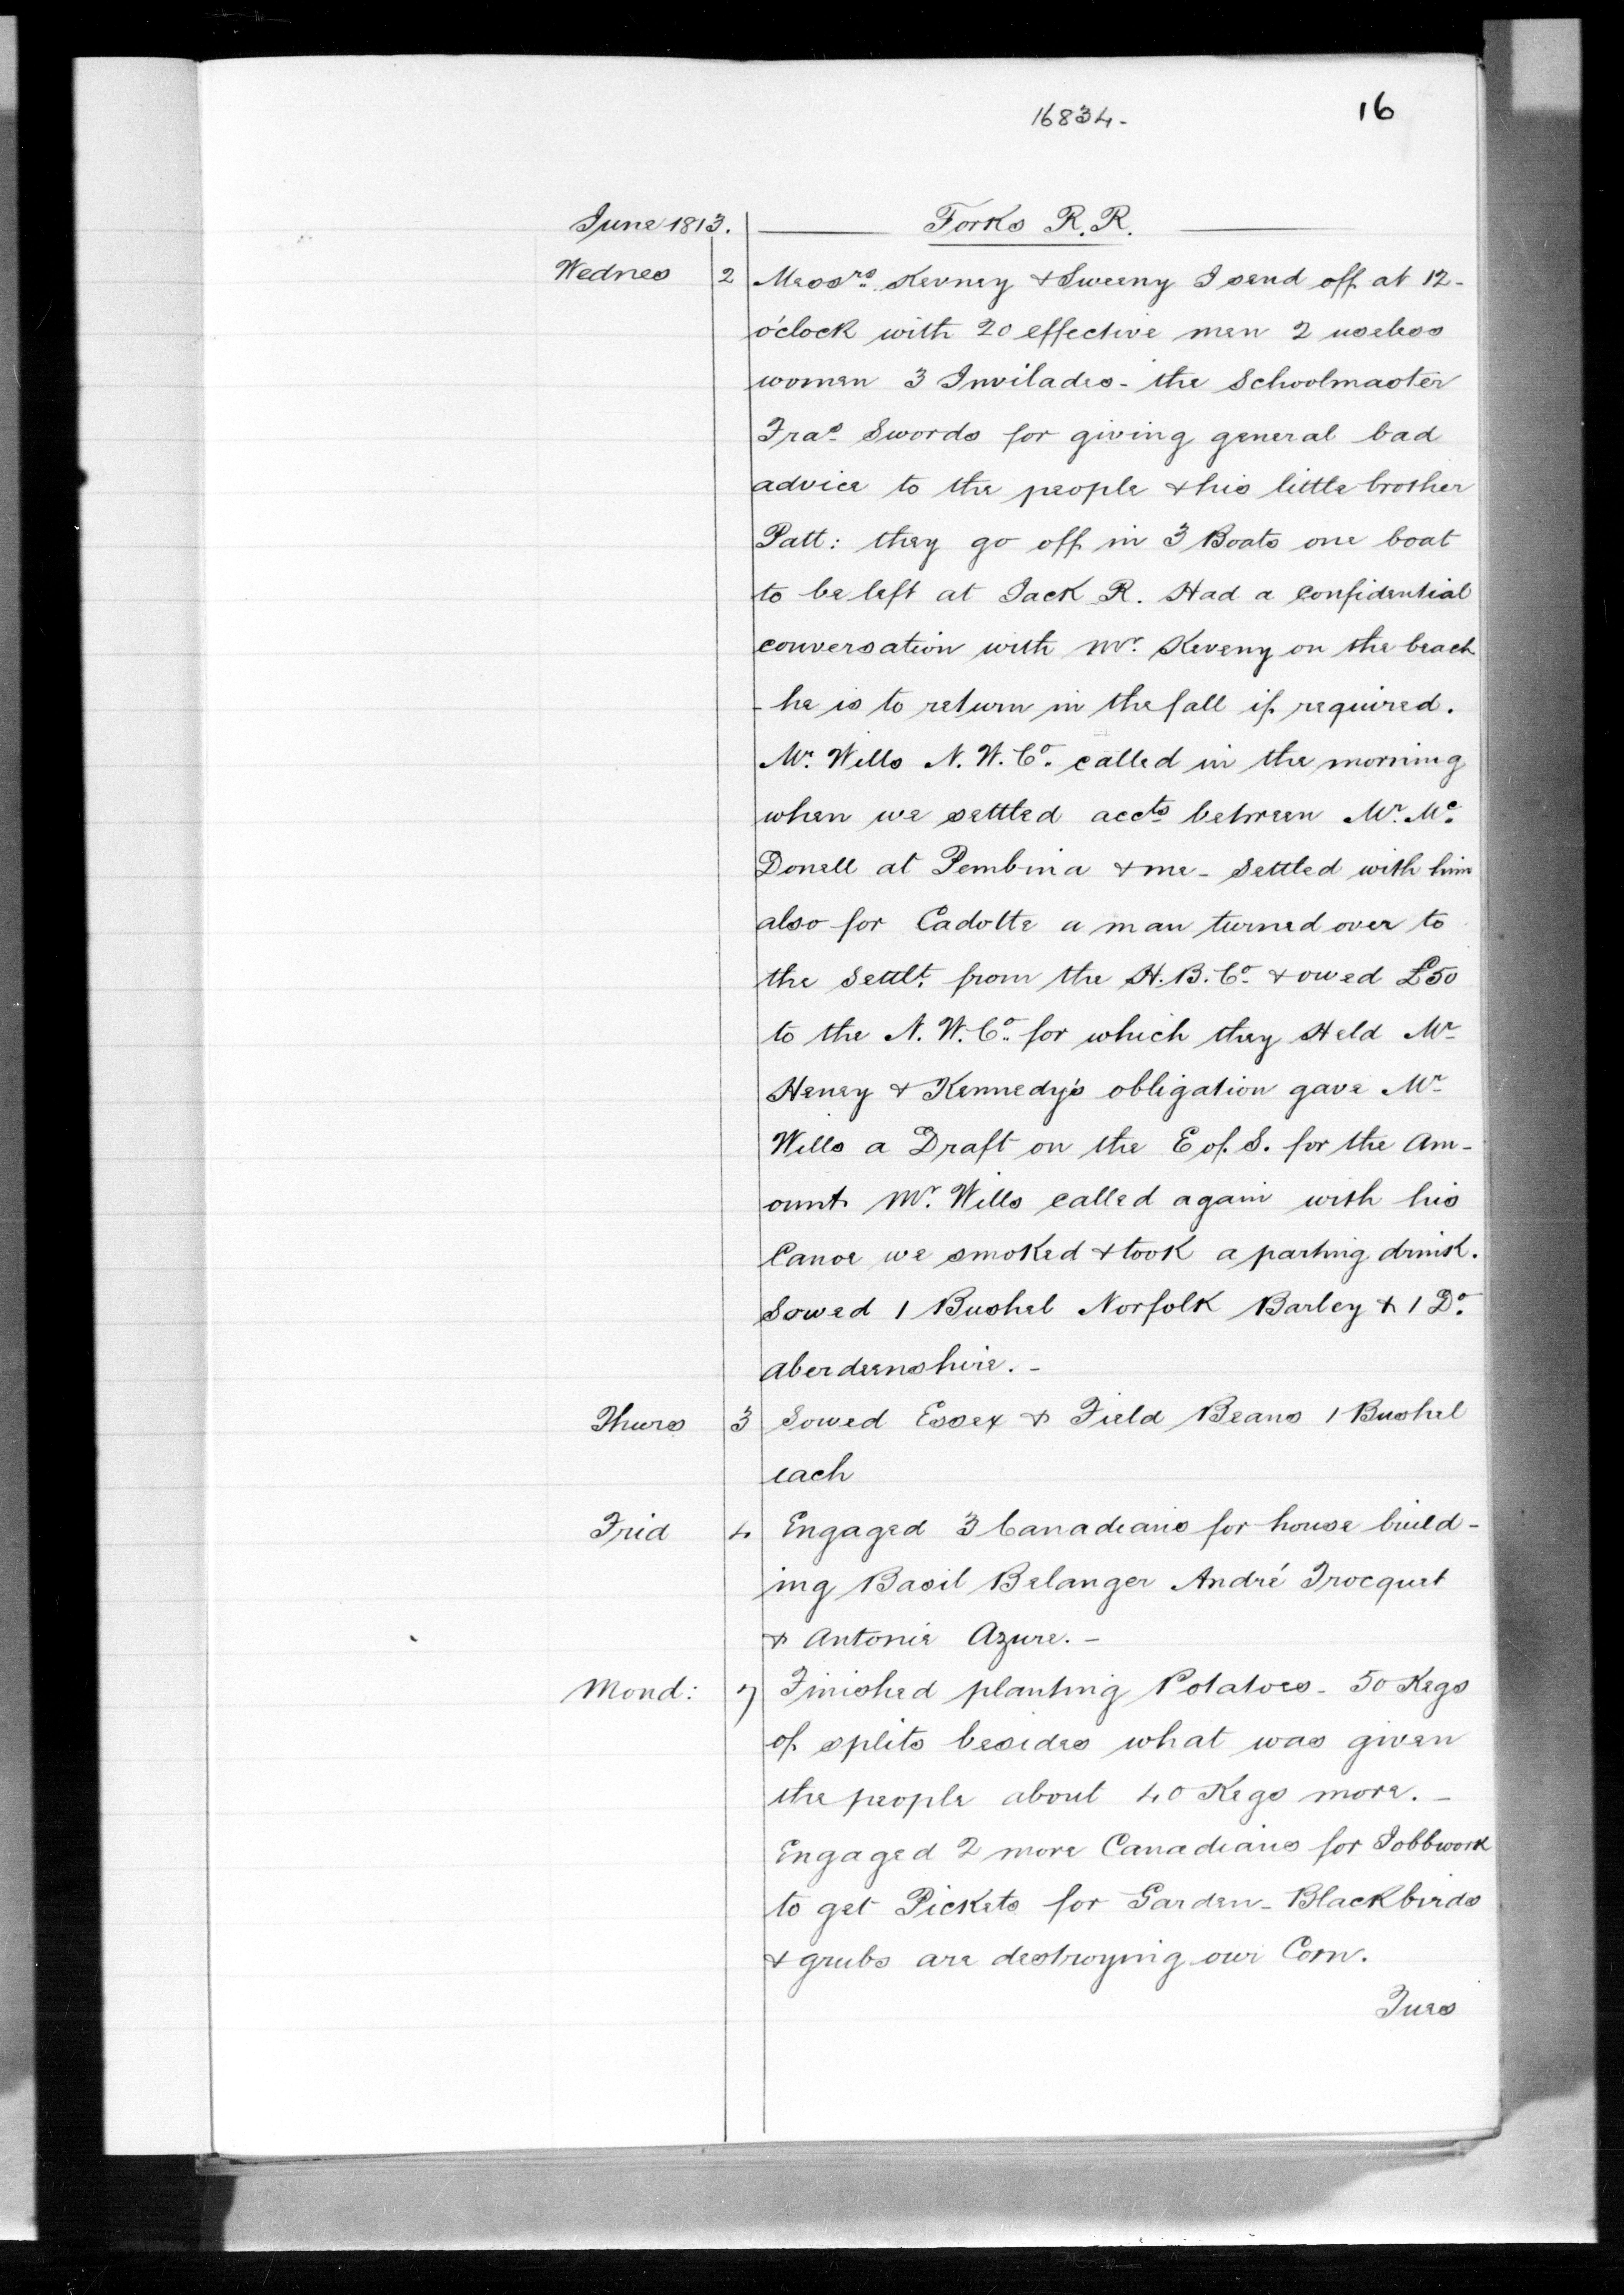 16834-
16
June 1813.
Forks R.R.
Wednes 2 Messrs. Kevney & Sweeny I send off at 12-
o'clock with 20 effective men 2 useless
women 3 Invilades - the Schoolmaster
Fras Swords for giving general bad
advice to the people & his little brother
Patt: they go off in 3 Boats one boat
to be left at Jack R. Had a confidential
conversation with Mr. Keveny on the beach
- he is to return in the fall if required.
Mr. Wills N. W. Co. called in the morning
when we settled accts between Mr. Mc.
Donell at Pembina & me - Settled with him
also for Cadotte a man turned over to
the Settlt. from the H. B. Co. & owed £50
to the N. W. Co. for which they Held Mr
Heney & Kennedy's obligation gave Mr
Wills a Draft on the E of S. for the Am-
ount Mr. Wills called again with his
Canoe we smoked & took a parting drink.
Sowed 1 Bushel Norfolk Barley & 1 Do.
Aberdeenshire. -
Thurs 3 Sowed Essex & Field Beans 1 Bushel
each
Frid 4 Engaged 3 Canadians for house build-
ing Basil Belanger André Trocquet
& Antonie Azure. -
Mond: 7 Finished planting Potatoes - 50 Kegs
of splits besides what was given
the people about 40 Kegs more. -
Engaged 2 more Canadians for Jobbwork
to get Pickets for Garden - Blackbirds
& grubs are destroying our Corn.
Tues